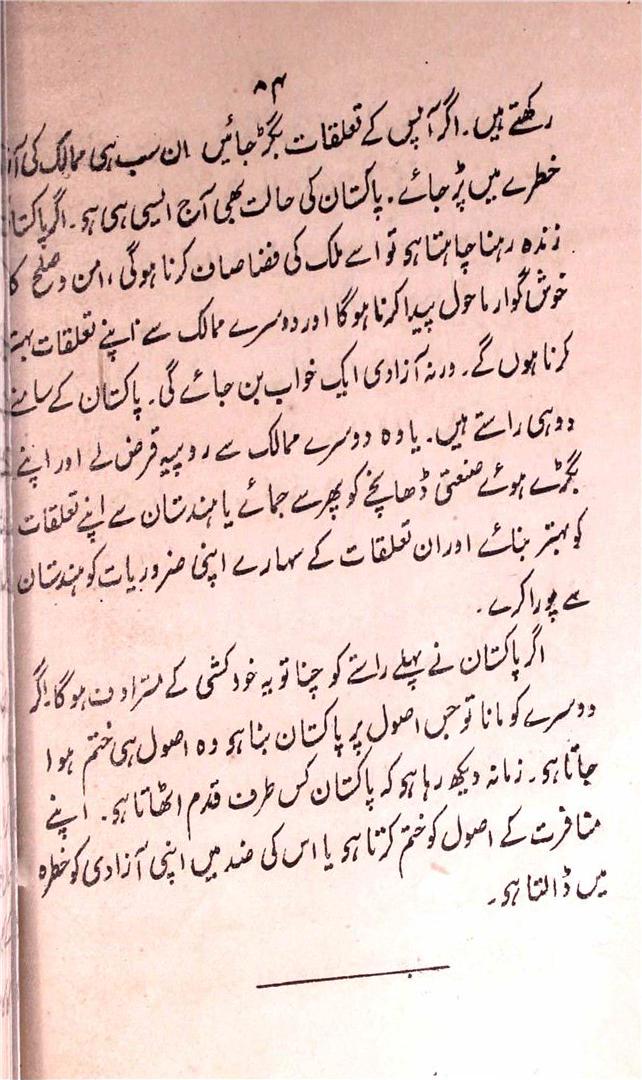 ۸۴
رکھتے ہیں۔ اگر آپس کے تعلقات بگڑ جائیں ان سب ہی ممالک کی
خطرے میں پڑ جائے۔ پاکستان کی حالت بھی آج ایسی ہی ہو۔ اگر پاکستا
زندہ رہنا چاہتا ہو تو اسے ملک کی فضا صاف کرنا ہوگی، امن و صلح کا
خوش گوار ماحول پیدا کرنا ہوگا اور دوسرے ممالک سے اپنے تعلقات بہتر
کرنا ہوں گے۔ ورنہ آزادی ایک خواب بن جائے گی۔ پاکستان کے سامنے
دو ہی راستے ہیں۔ یا وہ دوسرے ممالک سے روپیہ قرض لے اور اپنے
بگڑے ہوئے صنعتی ڈھانچے کو پھر سے جمائے یا ہندستان سے اپنے تعلقات
کو بہتر بنائے اور ان تعلقات کے سہارے اپنی ضروریات کو ہندستان
سے پورا کرے۔
اگر پاکستان نے پہلے راستے کو چنا تو یہ خودکشی کے مترادف ہوگا۔ اگر
دوسرے کو مانا تو جس اصول پر پاکستان بنا ہو وہ اصول ہی ختم ہوا
جاتا ہو۔ زمانہ دیکھ رہا ہو کہ پاکستان کس طرف قدم اٹھاتا ہو۔ اپنے
منافرت کے اصول کو ختم کرتا ہو یا اس کی ضد میں اپنی آزادی کو خطرہ
میں ڈالتا ہو۔